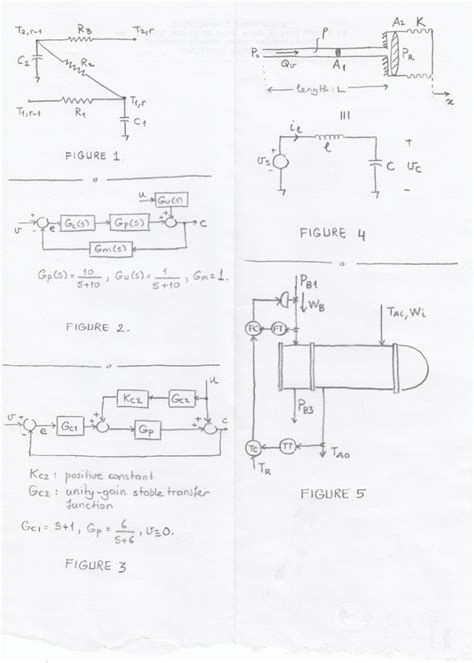 T2,r-1
R3
T2,r
C2
R2
T1,r-1
R1
T1,r
C1
FIGURE 1.
u
Gu(s)
v
+
-
e
Gc(s)
Gp(s)
+
+
c
Gm(s)
Gp(s) = 10/s+10 , Gu(s) = 1/s+10 , Gm = 1.
FIGURE 2.
u
Kc2
Gc2
v
+
-
e
Gc1
+
+
Gp
+
+
c
Kc2 : positive constant
Gc2 : unity-gain stable transfer
function
Gc1 = s+1 , Gp = 6/s+6 , v≡0.
FIGURE 3
ρ
A2
K
Qv
A1
PR
length: L
x
iℓ
ℓ
vs
C
vc
FIGURE 4
PB1
WB
FC
FT
TAC, Wi
PB3
TC
TT
TAO
TR
FIGURE 5